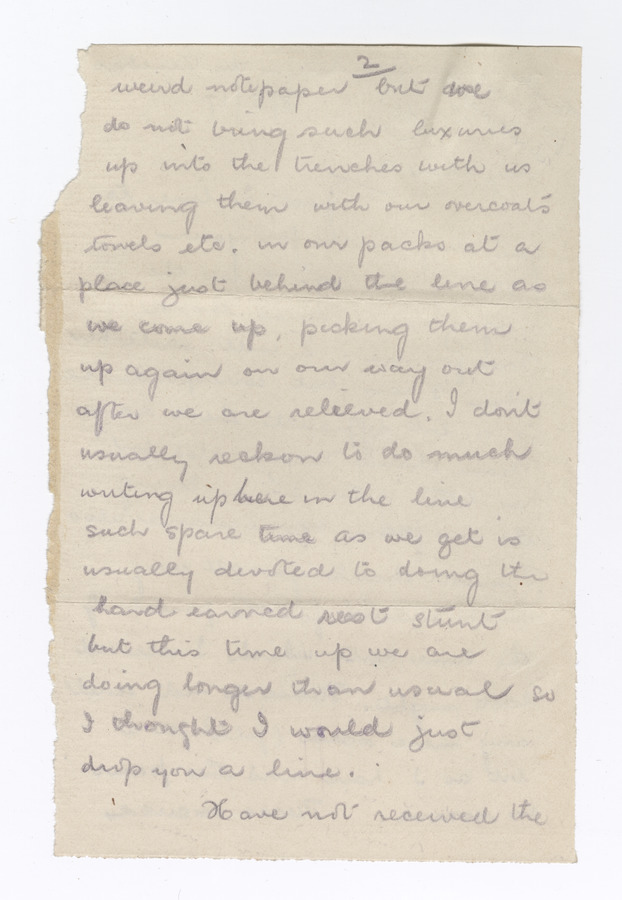 2
weird notepaper but we
do not bring such luxuries
up into the trenches with us
leaving them with our overcoats
towels etc. in our packs at a
place just behind the line as
we come up, picking them
up again on our way out
after we are relieved. I don't
usually reckon to do much
writing up here in the line
such spare time as we get is
usually devoted to doing the
hard earned rest stunt
but this time up we are
doing longer than usual so
I thought I would just
drop you a line.
Have not received the